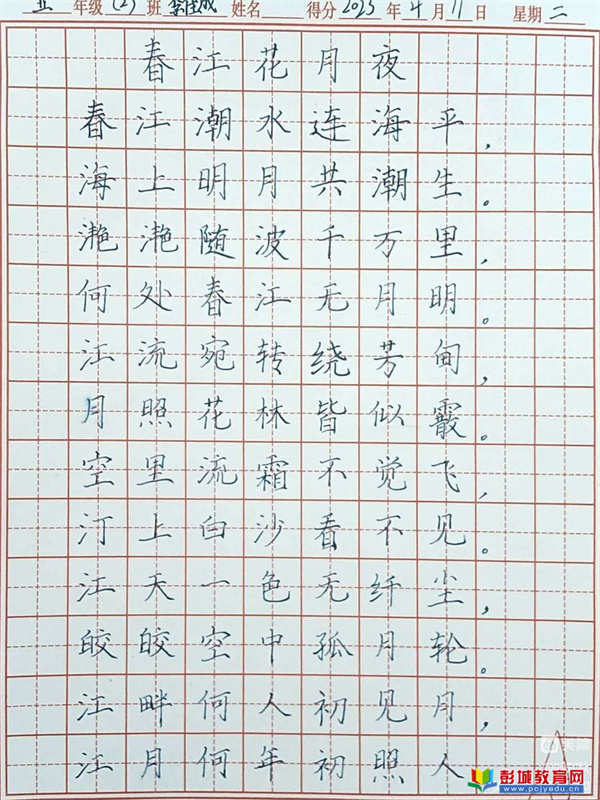 五 年级 (2) 班 姓名 得分 2023 年 4 月 11 日 星期 二
春江花月夜
春江潮水连海平，
海上明月共潮生。
滟滟随波千万里，
何处春江无月明。
江流宛转绕芳甸，
月照花林皆似霰。
空里流霜不觉飞，
汀上白沙看不见。
江天一色无纤尘，
皎皎空中孤月轮。
江畔何人初见月，
江月何年初照人
美篇
彭城教育网
www.pcjyedu.cn